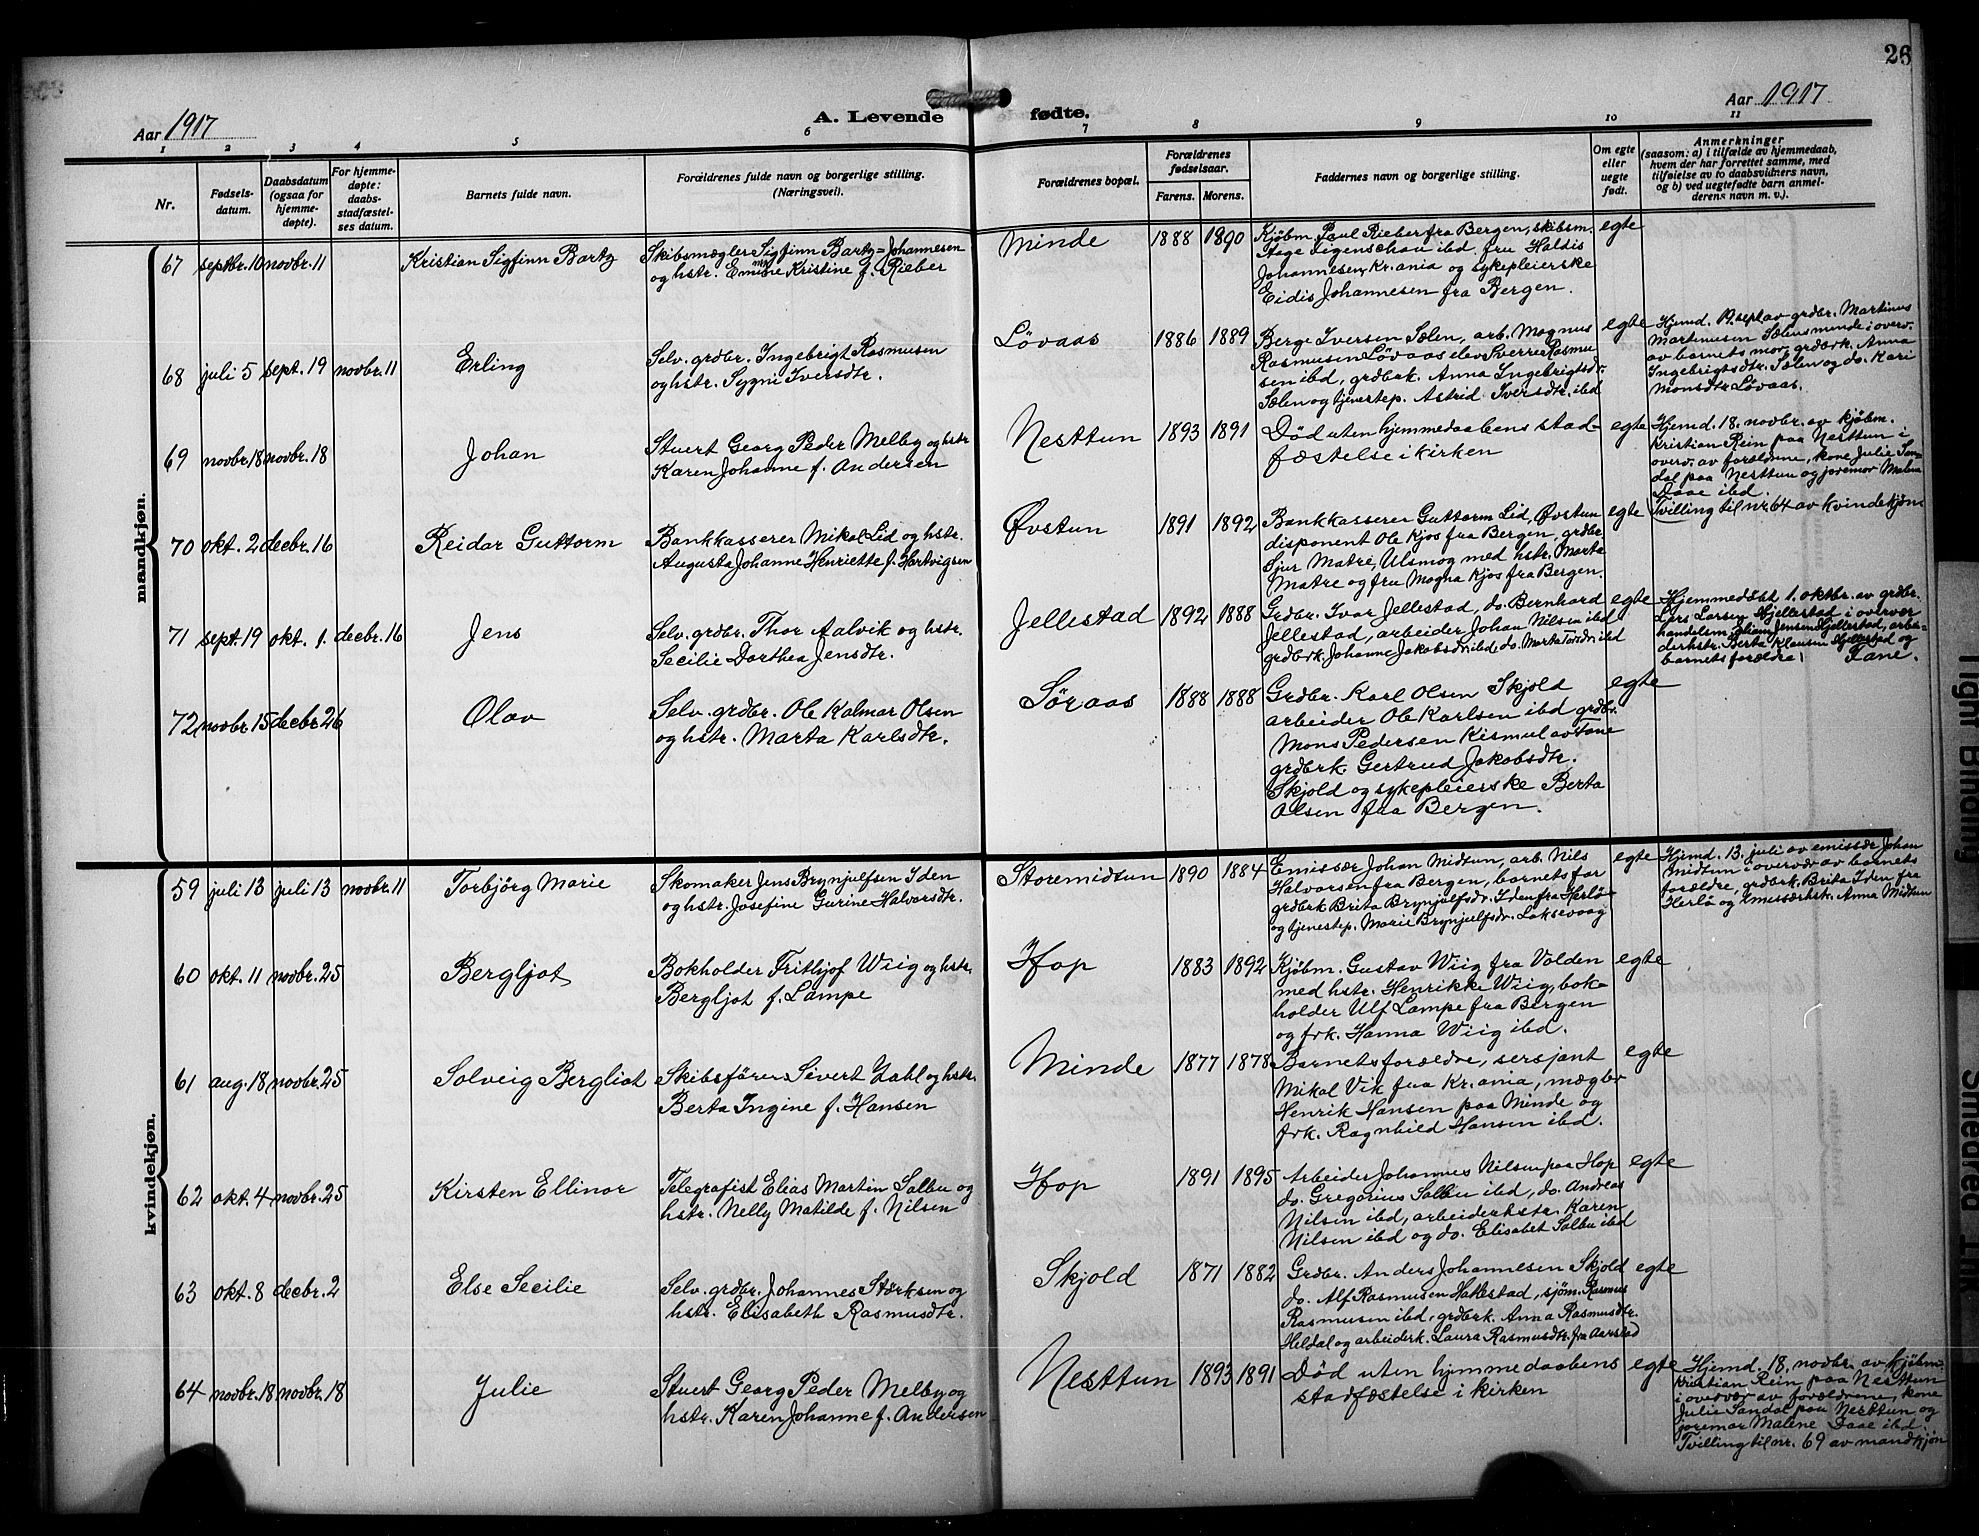 26
Aar 1917
A. Levende fødte.
Aar 1917
1 2 3 4 5 6 7 8 9 10 11
Nr.
Fødsels-
datum.
Daabsdatum
(ogsaa for
hjemme-
døpte).
For hjemme-
døpte:
daabs-
stadfæstel-
ses datum.
Barnets fulde navn.
Forældrenes fulde navn og borgerlige stilling.
(Næringsvei).
Forældrenes bopæl.
Forældrenes
fødselsaar.
Farens. Morens.
Faddernes navn og borgerlige stilling.
Om egte
eller
uegte
født.
Anmerkninger
(saasom: a) i tilfælde av hjemmedaab,
hvem der har forrettet samme, med
tilføielse av to daabsvidners navn,
og b) ved uegtefødte barn anmel-
derens navn m. v.).
mandkjøn.
67 septbr. 10 novbr. 11
Kristian Sigfinn Bartz
Skibsmægler Sigfinn Bartz=Johannesen
og hstr. Emmine Kristine f. Rieber
Minde 1888 1890
Kjøbm. Paul Rieber fra Bergen, skibsm.
Aage Eigenschau ibd, fru Haldis
Johannesen Kr.ania og sykepleierske
Eidis Johannesen fra Bergen.
egte
68 juli 5 sept. 19 novbr. 11
Erling
Selv. grdbr. Ingebrigt Rasmusen
og hstr. Sygni Iversdtr.
Løvaas 1886 1889
Berge Iversen Sælen, arb. Magnus
Rasmusen Løvaas elev Sverre Rasmu
sen ibd, grdbrk. Anna Ingebrigtsdr.
Sælen og tjenestep. Astrid Iversdtr. ibd
egte
Hjemd. 19. sept av grdbr. Martinus
Martinusen Sælensminde i overv.
av barnets mor, grdbrk. Anna
Ingebrigtsdtr. Sælen og do. Kari
Monsdtr Løvaas.
69 novbr. 18 novbr. 18
Johan
Stuert Georg Peder Melby og hstr
Karen Johanne f. Andersen
Nesttun 1893 1891
Død uten hjemmedaabens stad-
fæstelse i kirken
egte
Hjemd. 18. novbr. av kjøbm.
Kristian Rein paa Nesttun i
overv. av forældrene, kone Julie San-
dal paa Nesttun og joremor Malene
Daae ibd.
Tvilling til nr. 64 av kvindekjøn
70 okt. 2 decbr. 16
Reidar Guttorm
Bankkasserer Mikal Lid og hstr.
Augusta Johanne Henriette f. Hartvigsen
Øvstun 1891 1892
Bankkasserer Guttorm Lid, Øvstun
disponent Ole Kjos fra Bergen, grdbr.
Sjur Matre, Ulsmog med hstr. Marta
Matre og fru Magna Kjos fra Bergen.
egte
71 sept. 19 okt. 1. decbr. 16
Jens
Selv. grdbr. Thor Aalvik og hstr.
Secilie Dorthea Jensdtr.
Jellestad 1892 1888
Grdbr. Ivar Jellestad, do. Bernhard
Jellestad, arbeider Johan Nilsen ibd
grdbrk. Johanne Jakobsdr. ibd, do. Marta Tordr. ibd
egte
Hjemmedøbt 1. oktbr. av grdbr.
Lars Larsen Hjellestad i overvær
handelsm. Johan Jensen Hjellestad, arbe-
derhstr. Berta Klausen Hjellestad og
barnets forældre. Fane.
72 novbr. 15 decbr. 26
Olav
Selv. grdbr. Ole Kalmar Olsen
og hstr. Marta Karlsdtr.
Søraas 1888 1888
Grdbr. Karl Olsen Skjold
arbeider Ole Karlsen ibd grdbr.
Mons Pedersen Kismul av Fane
grdbrk. Gertrud Jakobsdtr.
Skjold og sykepleierske Berta
Olsen fra Bergen.
egte
kvindekjøn.
59 juli 13 juli 13 novbr. 11
Torbjörg Marie
Skomaker Jens Brynjulfsen Iden
og hstr. Josefine Gurine Halvorsdtr.
Storemidtun 1890 1884
Emissær Johan Midtun, arb. Nils
Halvorsen fra Bergen, barnets far
grdbrk Brita Brynjulfsdr. Iden fra Herlø
og tjenestep. Marie Brynjulfsdr. Laksevaag
egte
Hjemd. 13. juli av emissær Johan
Midtun i overvær av barnets
forældre, grdbrk. Brita Iden fra
Herlø og emissærhstr. Anna Midtun
60 okt. 11 novbr. 25
Bergljot
Bokholder Frithjof Wiig og hstr.
Bergljot f. Lampe
Hop 1883 1892
Kjøbm. Gustav Wiig fra Volden
med hstr. Henrikke Wiig, bok-
holder Ulf Lampe fra Bergen
og frk. Hanna Wiig ibd.
egte
61 aug. 18 novbr. 25
Solveig Bergliot
Skibsfører Sivert Dahl og hstr.
Berta Ingine f. Hansen
Minde 1877 1878
Barnets forældre, sersjant
Mikal Vik fra Kr.ania, mægler
Henrik Hansen paa Minde og
frk. Ragnhild Hansen ibd.
egte
62 okt. 4 novbr. 25
Kirsten Ellinor
Telegrafist Elias Martin Salbu og
hstr. Nelly Matilde f. Nilsen
Hop 1891 1895
Arbeider Johannes Nilsen paa Hop
do. Gregorius Salbu ibd, do. Andreas
Nilsen ibd, arbeiderhstr. Karen
Nilsen ibd og do. Elisabet Salbu ibd
egte
63 okt. 8 decbr. 2
Else Secilie
Selv. grdbr. Johannes Størksen og
hstr. Elisabeth Rasmusdtr.
Skjold 1871 1882
Grdbr. Anders Johannesen Skjold
do. Alf Rasmusen Hatlestad, sjøm. Rasmus
Rasmusen ibd, grdbrk. Anna Rasmusdtr.
Heldal og arbeiderk. Laura Rasmusdtr. fra Aarstad
egte
64 novbr. 18 novbr. 18
Julie
Stuert Georg Peder Melby og
hstr. Karen Johanne f. Andersen
Nesttun 1893 1891
Død uten hjemmedaabens
stadfæstelse i kirken
egte
Hjemd. 18. novbr. av kjøbm.
Kristian Rein paa Nesttun
i overvær av forældrene, kone
Julie Sandal paa Nesttun og
joremor Malene Daae ibd.
Tvilling til nr. 69 av mandkjøn
Tight Binding
Smeared Ink